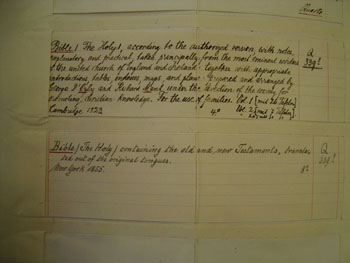 Quarto
Bible / The Holy /, according to the authorized version, with notes
explanatory and practical, taken principally from the most eminent writers
of the united church of England and Ireland: together with appropriate
introductions, tables, indexes, maps, and plans: prepared and arranged by
George D'Oyly and Richard Mant, under the direction of the society for
promoting Christian knowledge. For the use of families. Vol. 1 [
Cambridge 1823 4º Vol. 2 [
Q
339
Bible / The Holy / containing the old and new Testaments, transla-
ted out of the original tongues.
New York 1855. 8º
Q
339